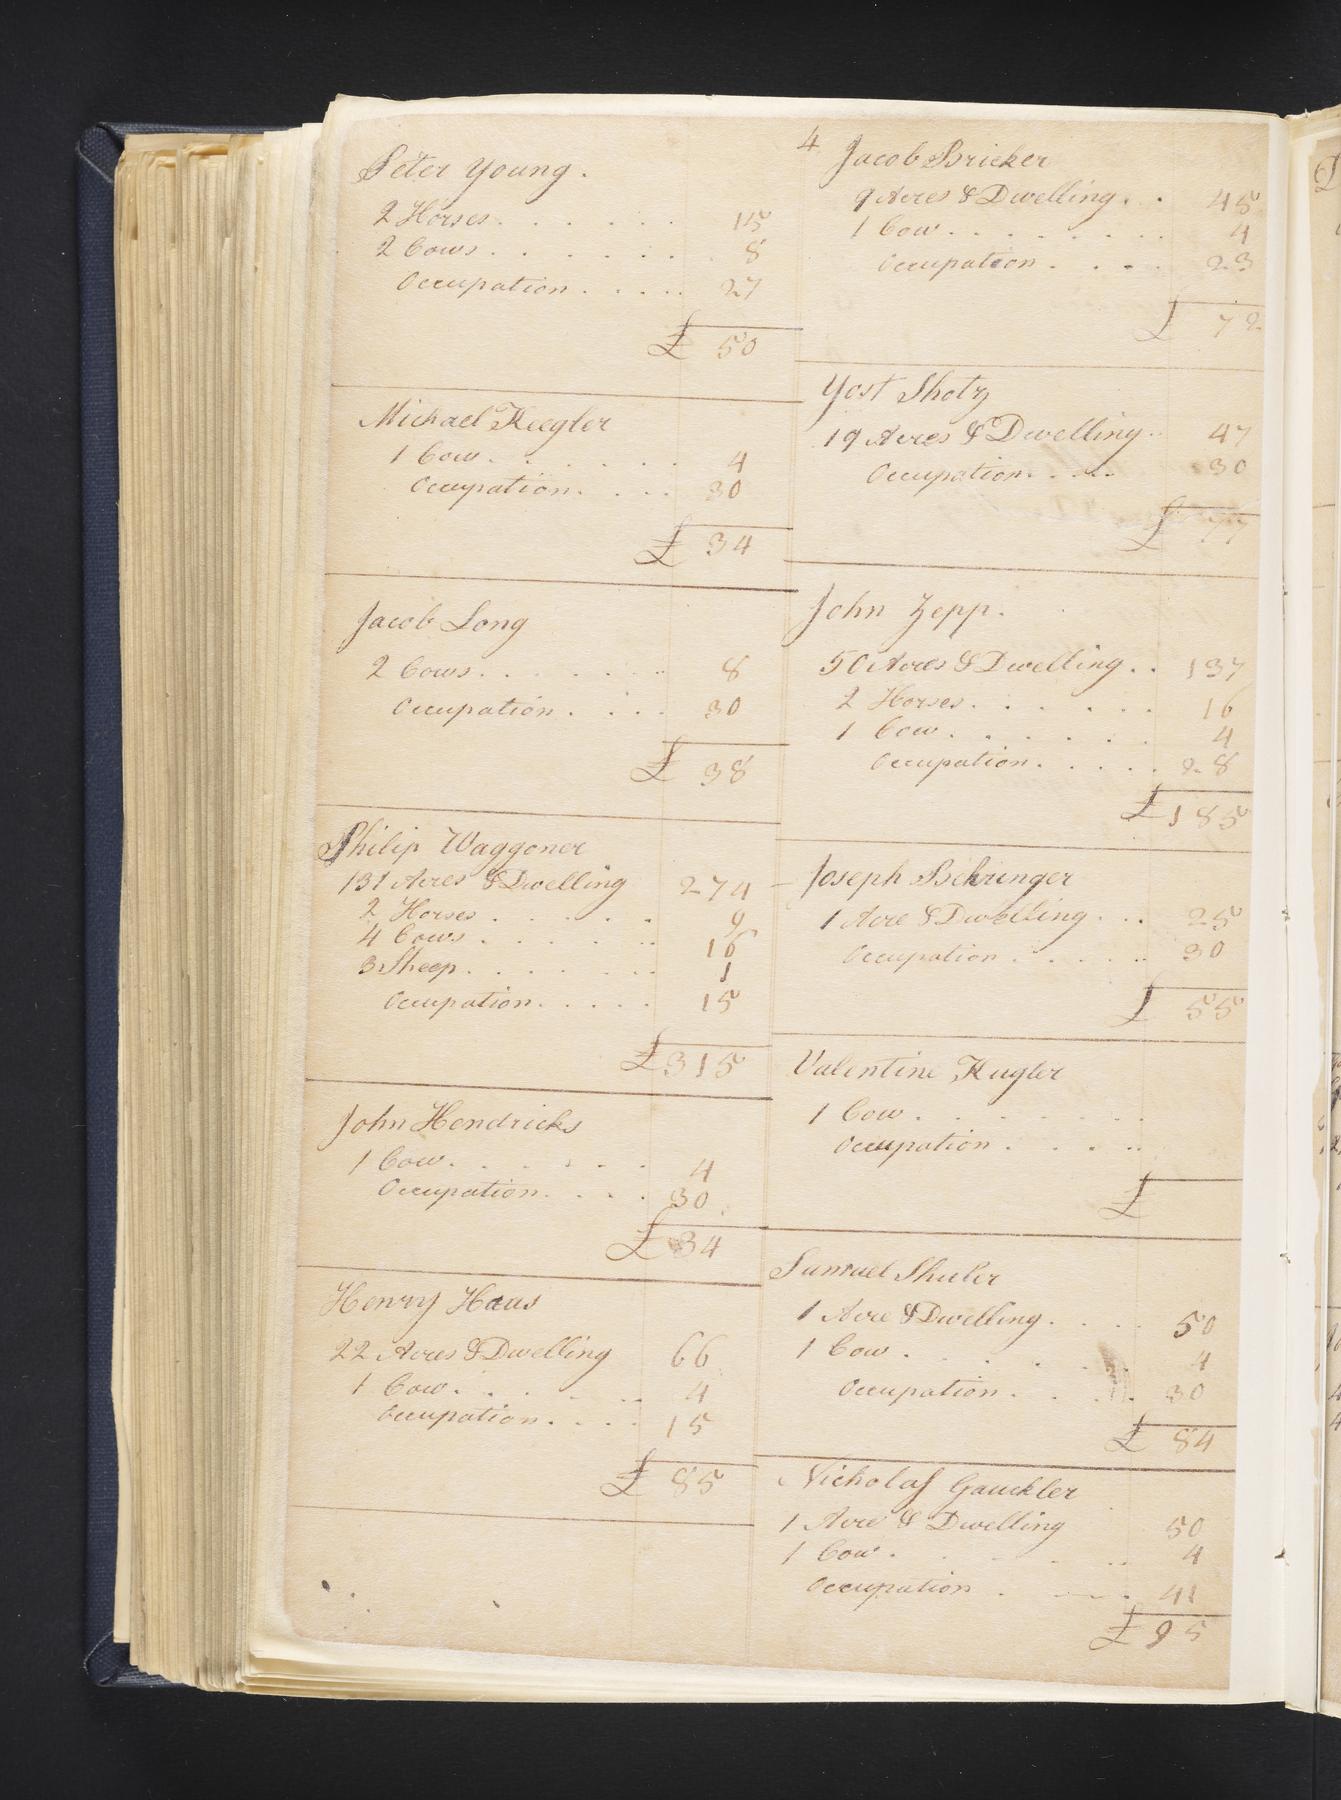 4
Peter Young.
2 Horses . . . . . . 15
2 Cows . . . . . . . 8
Occupation . . . . . 27
£ 50
Michael Keegler
1 Cow . . . . . . . 4
Occupation . . . . 30
£ 34
Jacob Long
2 Cows . . . . . . . 8
Occupation . . . . 30
£ 38
Philip Waggoner
131 Acres & Dwelling 274
2 Horses . . . . . 9
4 Cows . . . . . . 16
3 Sheep . . . . . . . 1
Occupation . . . . . 15
£ 315
John Hendricks
1 Cow . . . . . . 4
Occupation . . . . 30
£ 34
Henry Haus
22 Acres & Dwelling 66
1 Cow . . . . . . 4
Occupation . . . . 15
£ 85
Jacob Bricker
9 Acres & Dwelling . . 45
1 Cow . . . . . . . . 4
Occupation . . . . 23
£ 72
Yost Shotz
19 Acres & Dwelling . . 47
Occupation . . . . 30
£ 77
John Zepp.
50 Acres & Dwelling . . 137
2 Horses . . . . . . 16
1 Cow . . . . . . . 4
Occupation . . . . . 28
£ 185
Joseph Behringer
1 Acre & Dwelling . . . 25
Occupation . . . . . 30
£ 55
Valentine Kugler
1 Cow . . . . . . . .
Occupation . . . . .
£
Samuel Shuler
1 Acre & Dwelling . . . . 50
1 Cow . . . . . . 4
Occupation . . . . 30
£ 84
Nicholas Gauckler
1 Acre & Dwelling 50
1 Cow . . . . . 4
Occupation . . . . 41
£ 95